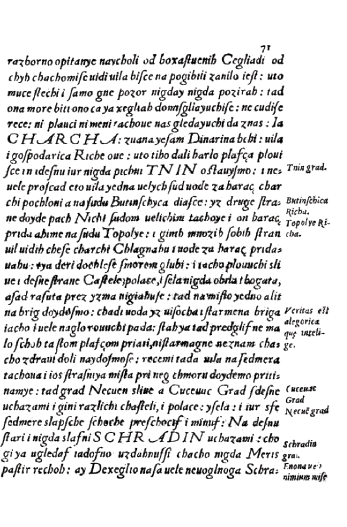 71
razborno opitanye naycholi od boxastuenih Cegliadi od
chyh chachomise uidi uila bisce na pogibili zanilo iest: uto
muce stechi i samo gne pozor nigday nigda pozirah: tad
ona more bitt ono ca ya xegliah domisgliayuchise: ne cudise
rece: ni plauci ni meni rachoue nas gledayuchi da znas: Ia
CHARCHA: zuana yesam Dinarina bchi: uila
i gospodarica Riche oue: uto tiho dali harlo plasça ploui
sce in idesnu iur nigda pichni TNIN ostauismo: i nes
Tnin grad.
uele prosad eto uila yedna uelych sud uode za harac, char
chi pochloni a na sudu Butinschyca diasce: yz druge stra
Butinschica
ne doyde pach Nicht sudom uelichim tachoye i on harac
Richa.
prida ahime na sudu Topolye: i gimh mnozih sobih stran
Topolye Ri-
cha.
uil uidih chese charchi Chlagnahu i uode za harac pridas
uahu: tya deri dochlese smorem glubi: i iacho plouuchi sli
ue i desne strane Castele; polace, i sela nigda obrha i bogata,
asad rasuta prez yzma
tad na misto yedno alit
na brig doydosmo: chadi uoda yz uisocha i starmena briga
Veritas est
alegorica
iacho i uele naglo rouuchi pada: stahya tad predglise ne ma
que inteli-
lo schoh tastom plasçom priati, ni starmagne neznam chas
ge.
cho zdraui doli naydosmose: recemi tada uila nasedmera
tachoua i ios strasniya mista pri neg chmoru doydemo pritis
namye: tad grad Necuen sliue a Cuceuuc Grad sdesne
Cuceuuc
Grad
uchazami i gini razlichi chasteli, i polace; ysela: i iur sse
Necuē grad
sedmere slapsche schoche preschocif i minuf: Na desnu
stari i nigda slafni SCHRADIN uchazami: cho
Schradin
grad.
gi ya ugledaf tadofno uzdahnufsi chacho nigda Meris
pastir rechoh: ay Dexeglio nasa uele neuoglnoga Schra-
nimium uise